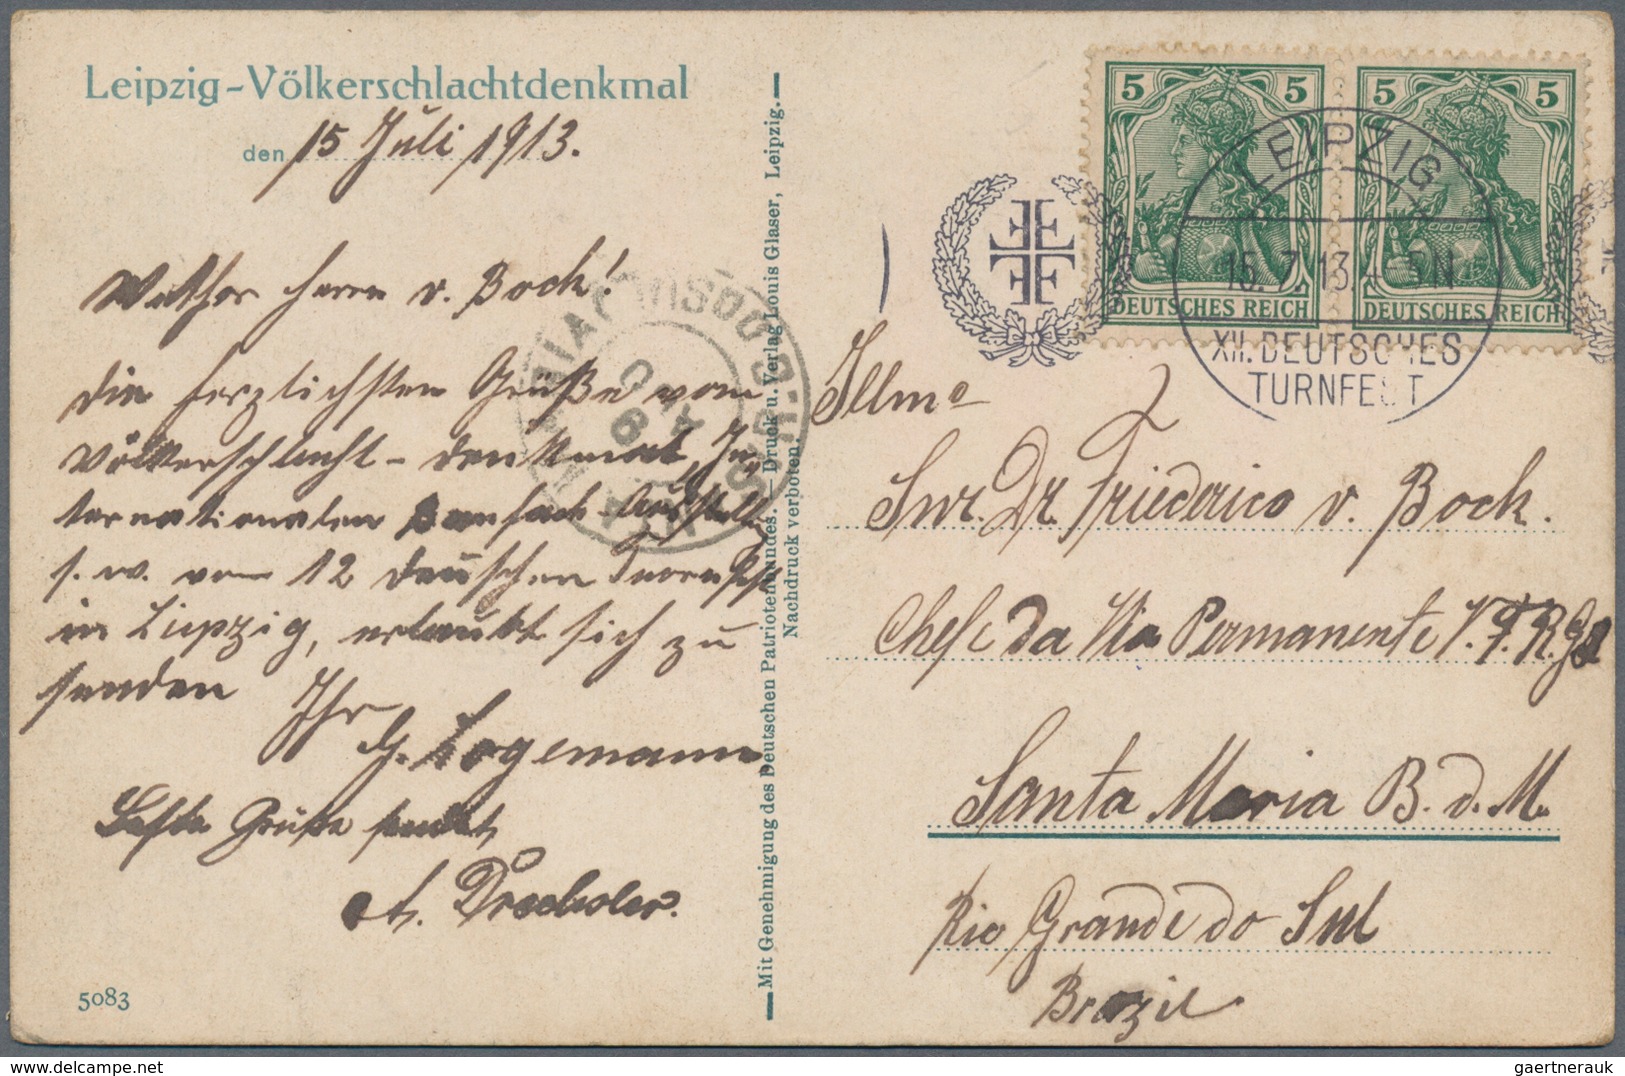 Leipzig-Völkerschlachtdenkmal
den 15 Juli 1913.
Werther Herr v. Bock!
Die herzlichsten Grüße vom
Völkerschlacht-denkmal, In-
ternationalen Baufach-Ausstellg
s. w. vom 12 deutschen Turnfest
in Leipzig, erlaubt sich zu
senden
Ihr
Beste Grüße sendet
A. Drechsler.
5083
Mit Genehmigung des Deutschen Patriotenbundes. — Druck u. Verlag Louis Glaser, Leipzig.
Nachdruck verboten.
5 5
DEUTSCHES REICH
5 5
DEUTSCHES REICH
LEIPZIG
15.7.13.4-5N
XII. DEUTSCHES
TURNFEST
Illmo
Snr. Dr. Friederico v. Bock.
Chefe da Via Permanente V.F.R.G.S
Santa Maria B. d. M.
Rio Grande do Sul
Brazil
gaertnerauk